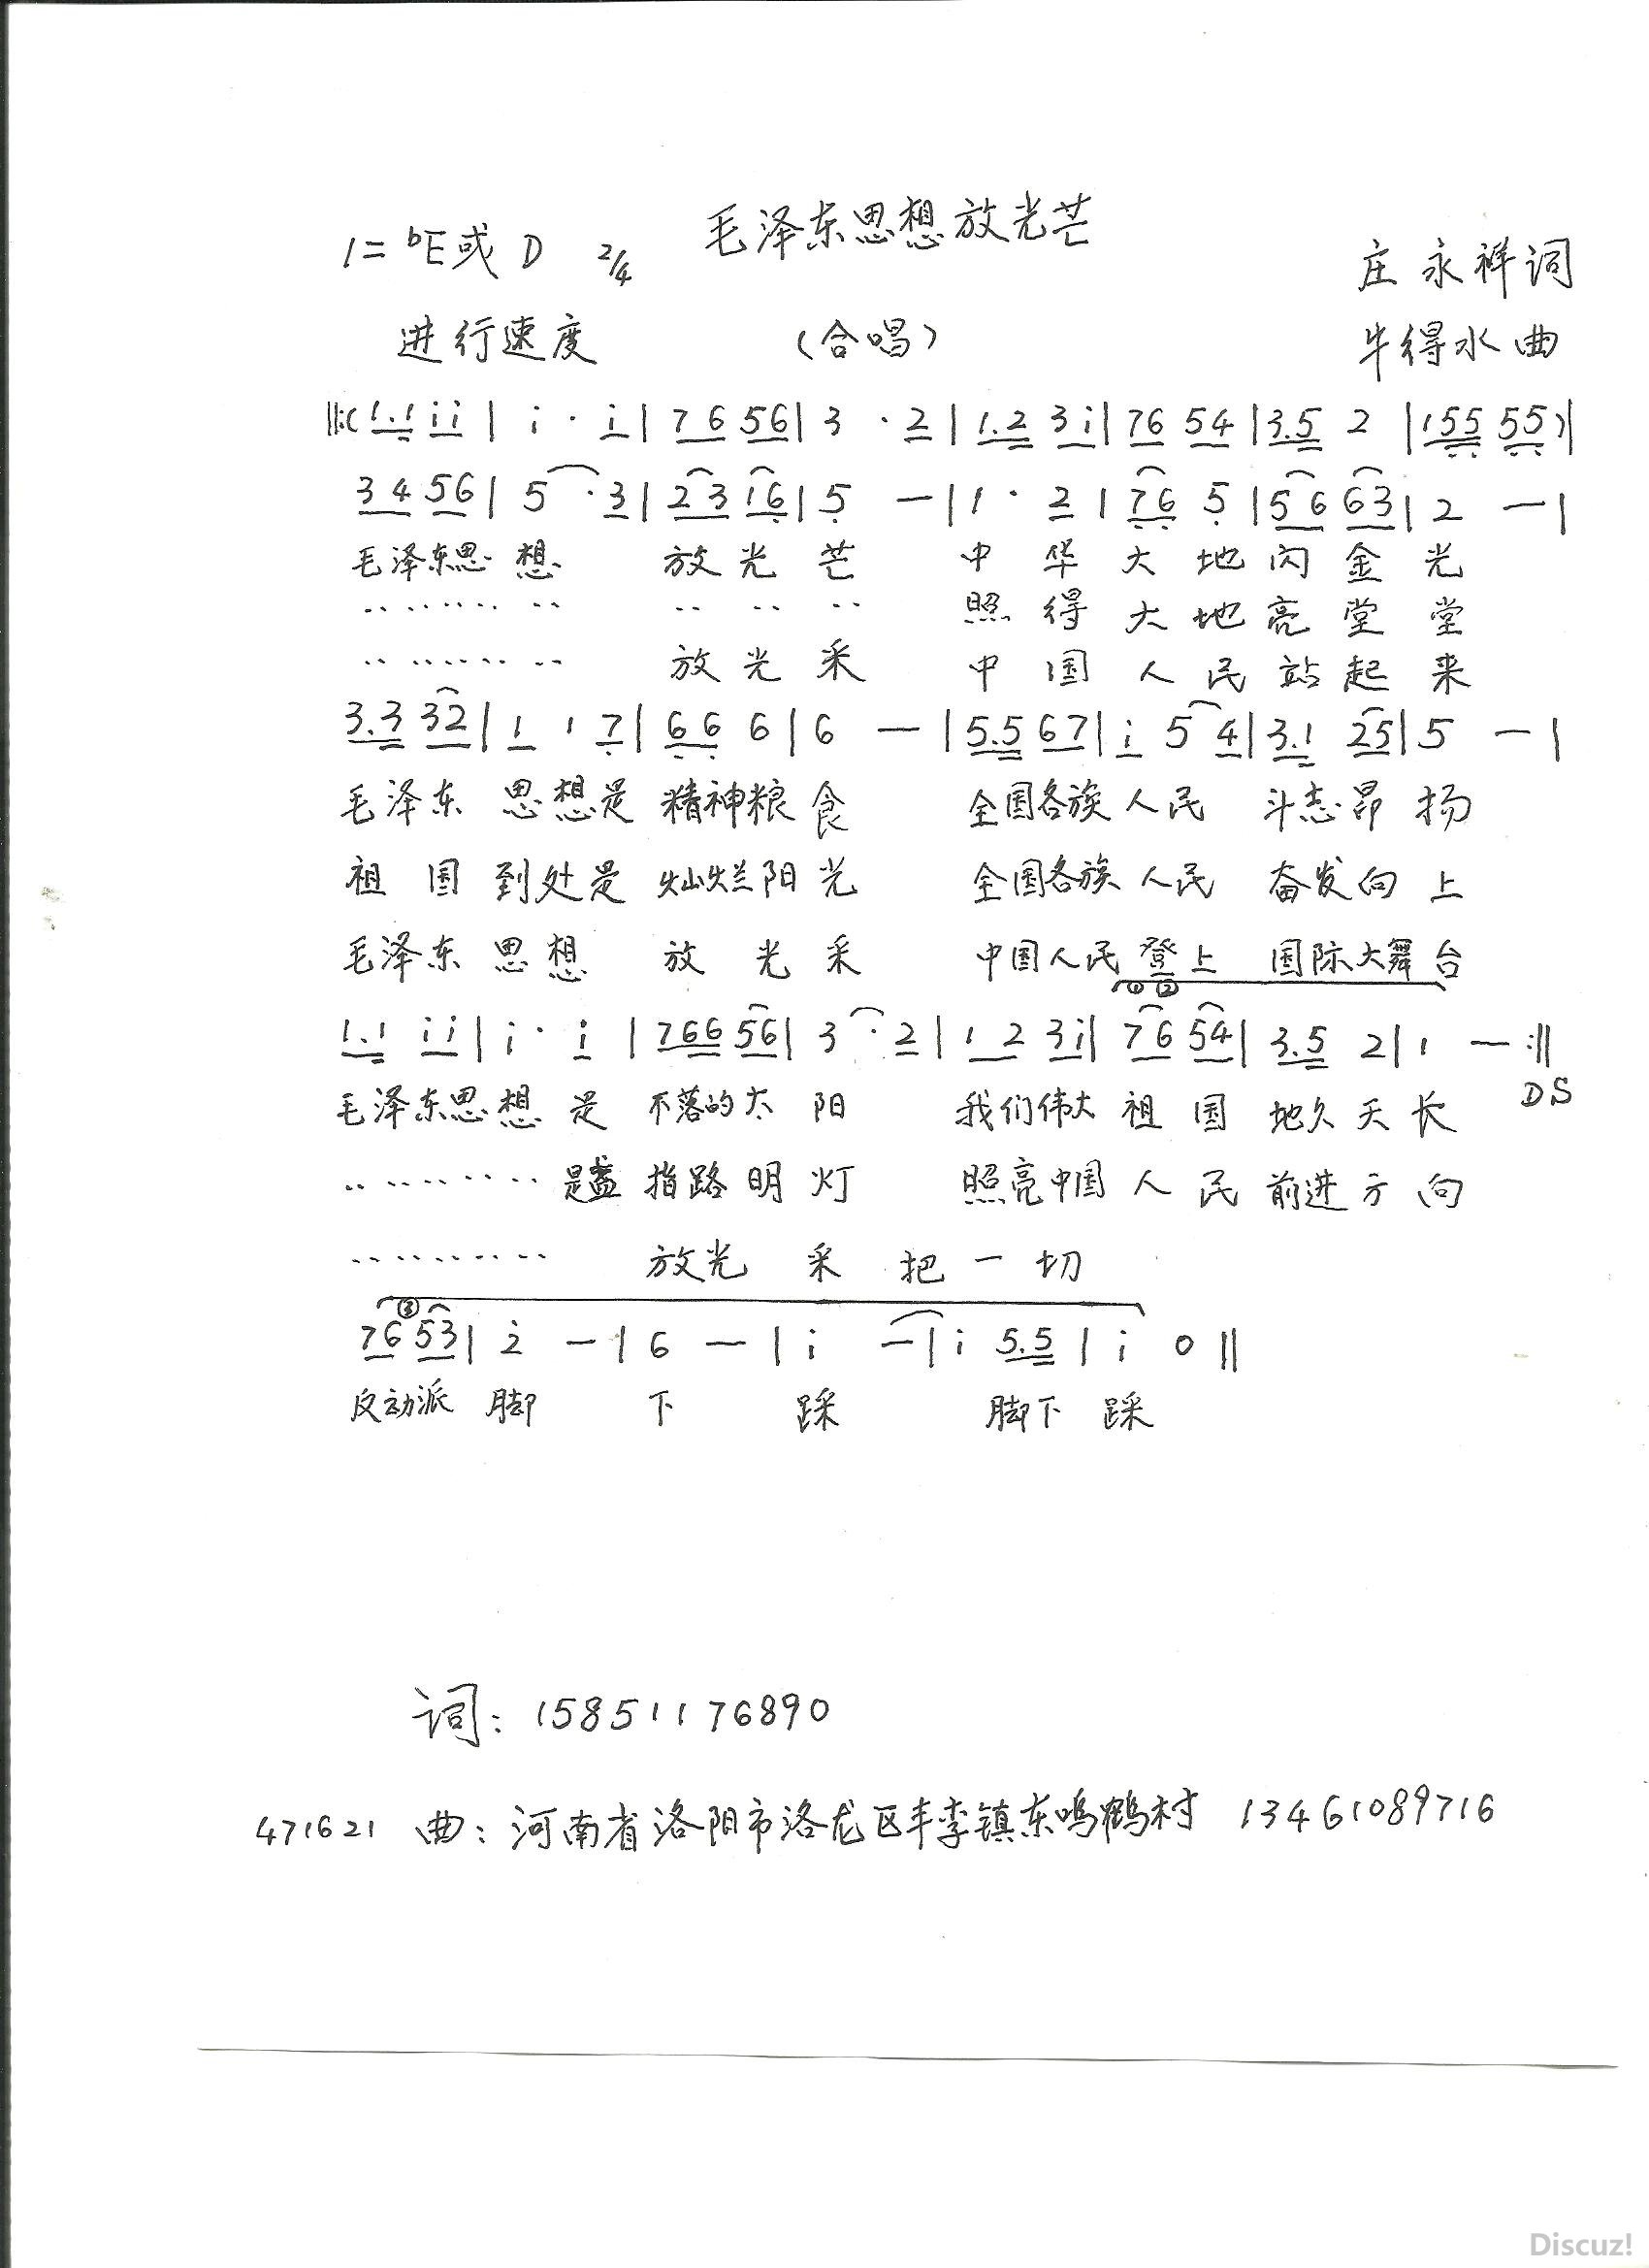 毛泽东思想放光芒
1=ᵇE或D 2/4
庄永祥词
进行速度 (合唱) 牛得水曲
‖:(1.1 i i | i · i | 7 6 5 6 | 3 · 2 | 1.2 3 i | 7 6 5 4 | 3.5 2 | 1 5 5 5 5) |
3 4 5 6 | 5 · 3 | 2 3 1 6 | 5 — | 1 · 2 | 7 6 5 | 5 6 6 3 | 2 — |
毛泽东思想 放光芒 中华大地闪金光
‥‥‥‥ ‥ ‥ ‥ ‥ 照得大地亮堂堂
‥‥‥‥ ‥ 放光采 中国人民站起来
3.3 3 2 | 1 1 7 | 6 6 6 | 6 — | 5.5 6 7 | i 5 4 | 3.1 2 5 | 5 — |
毛泽东思想是精神粮食 全国各族人民 斗志昂扬
祖国到处是灿烂阳光 全国各族人民 奋发向上
毛泽东思想 放光采 中国人民登上 国际大舞台
① ②
1.1 i i | i · i | 7 6 6 5 6 | 3 · 2 | 1 2 3 i | 7 6 5 4 | 3.5 2 | 1 — :‖
DS
毛泽东思想是 不落的太阳 我们伟大祖国 地久天长
‥‥‥‥‥ 是盏指路明灯 照亮中国人民前进方向
‥‥‥‥‥ 放光采把一切
③
7 6 5 3 | 2̇ — | 6 — | i — | i 5.5 | i 0 ‖
反动派脚 下 踩 脚下踩
词: 15851176890
471621 曲: 河南省洛阳市洛龙区丰李镇东鸣鹤村 13461089716
Discuz!